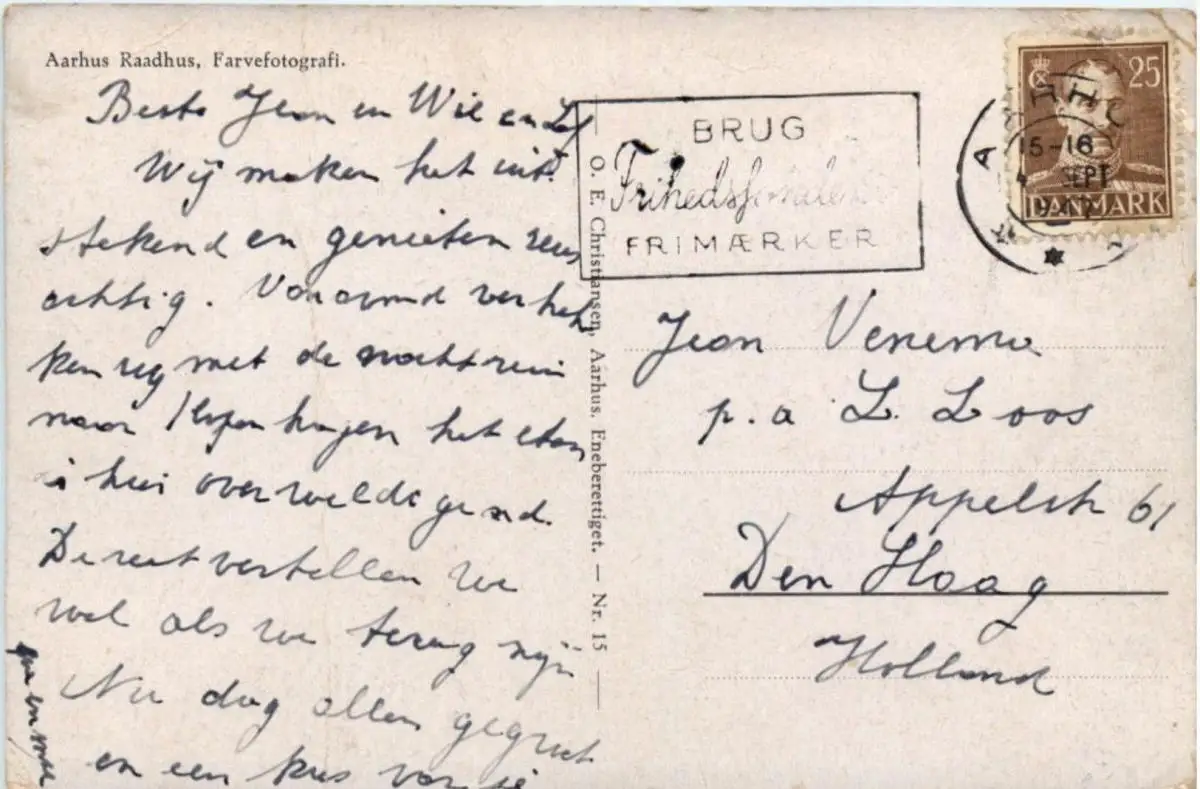 Aarhus Raadhus, Farvefotografi.
Beste Jean en Wil en
Wij maken het uit-
stekend en genieten reus
achtig. Vanavond vertrek
ken wij met de nachttrein
naar Kopenhagen het eten
is hier overweldigend.
De rest vertellen we
wel als we terug zijn
Nu dag allen gegroet
en een kus van je
O. E. Christiansen, Aarhus. Eneberettiget. — Nr. 15
BRUG
Frihedsfondens
FRIMÆRKER
25
15-16
4 SEPT
DANMARK
Jean Venema
p.a L. Loos
Appelstr 61
Den Haag
Holland